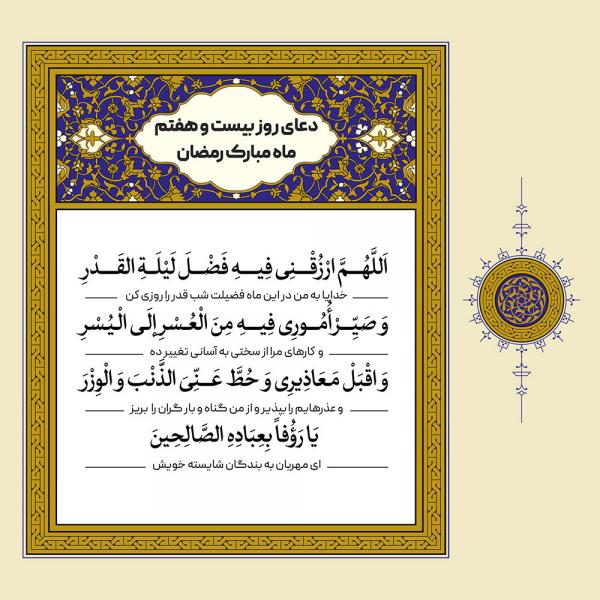 دعای روز بیست و هفتم
ماه مبارک رمضان
اَللَّهُمَّ ارْزُقْنِی فِیهِ فَضْلَ لَیْلَةِ الْقَدْرِ
خدایا به من در این ماه فضیلت شب قدر را روزی کن
وَ صَیِّرْ أُمُورِی فِیهِ مِنَ الْعُسْرِ إِلَی الْیُسْرِ
و کارهای مرا از سختی به آسانی تغییر ده
وَ اقْبَلْ مَعَاذِیرِی وَ حُطَّ عَنِّیَ الذَّنْبَ وَ الْوِزْرَ
و عذرهایم را بپذیر و از من گناه و بار گران را بریز
یَا رَؤُفاً بِعِبَادِهِ الصَّالِحِینَ
ای مهربان به بندگان شایسته خویش